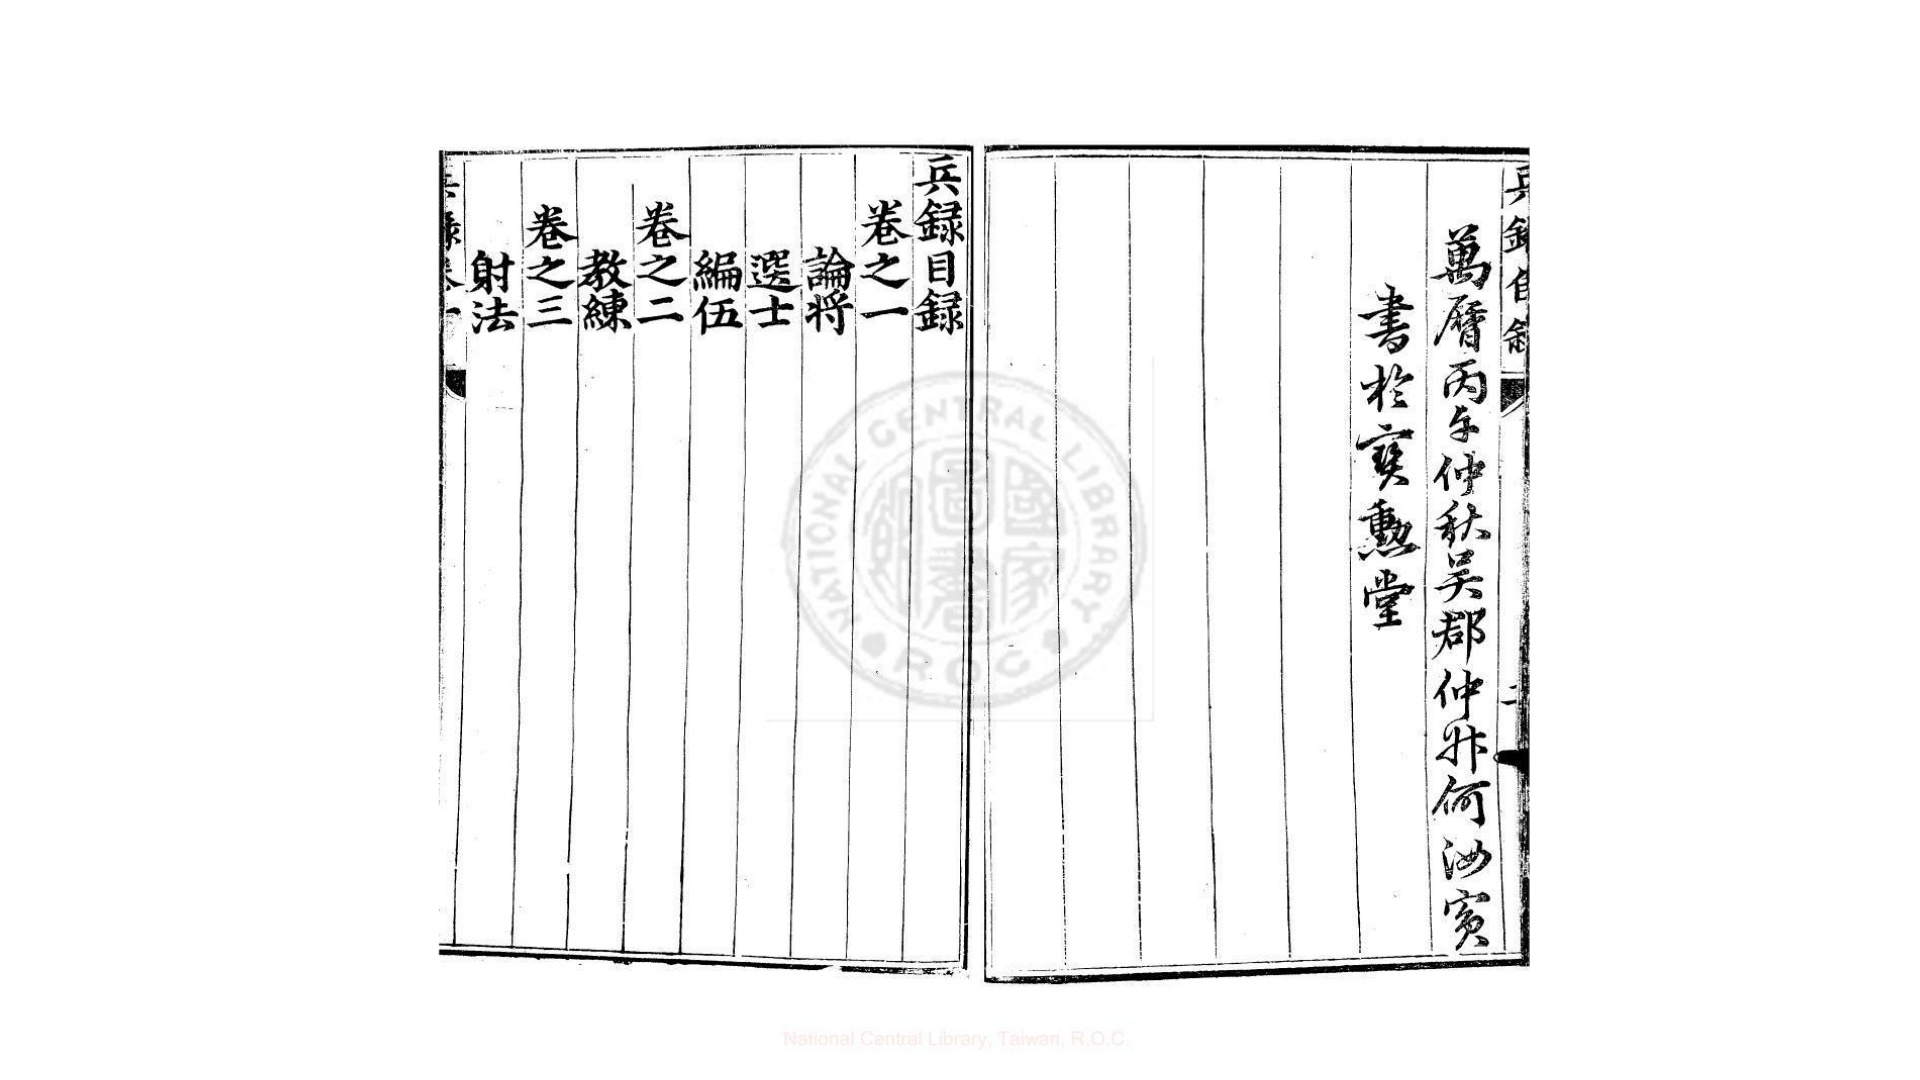 萬曆丙午仲秋吳郡仲升何汝賓
書於寶勳堂
兵録目録
卷之一
論將
選士
編伍
卷之二
教練
卷之三
射法
NATIONAL CENTRAL LIBRARY
國家圖書館
ROC
National Central Library, Taiwan, R.O.C.